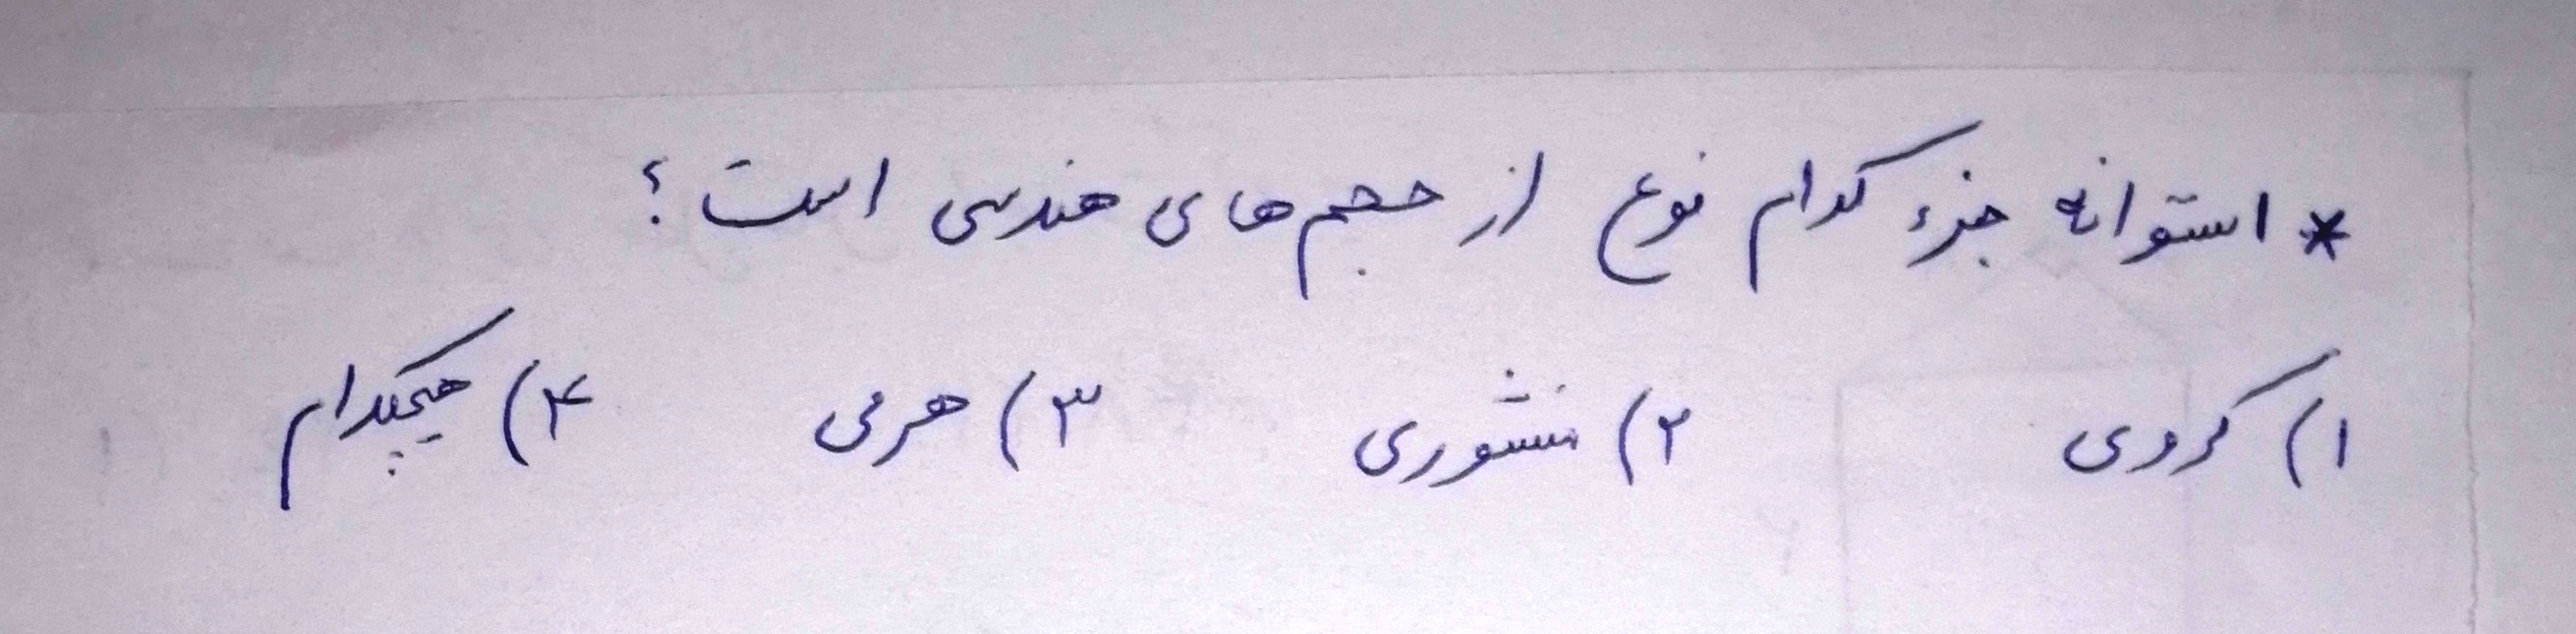 * استوانه جزء کدام نوع از حجم‌های هندسی است؟
۱) کروی ۲) منشوری ۳) هرمی ۴) هیچکدام